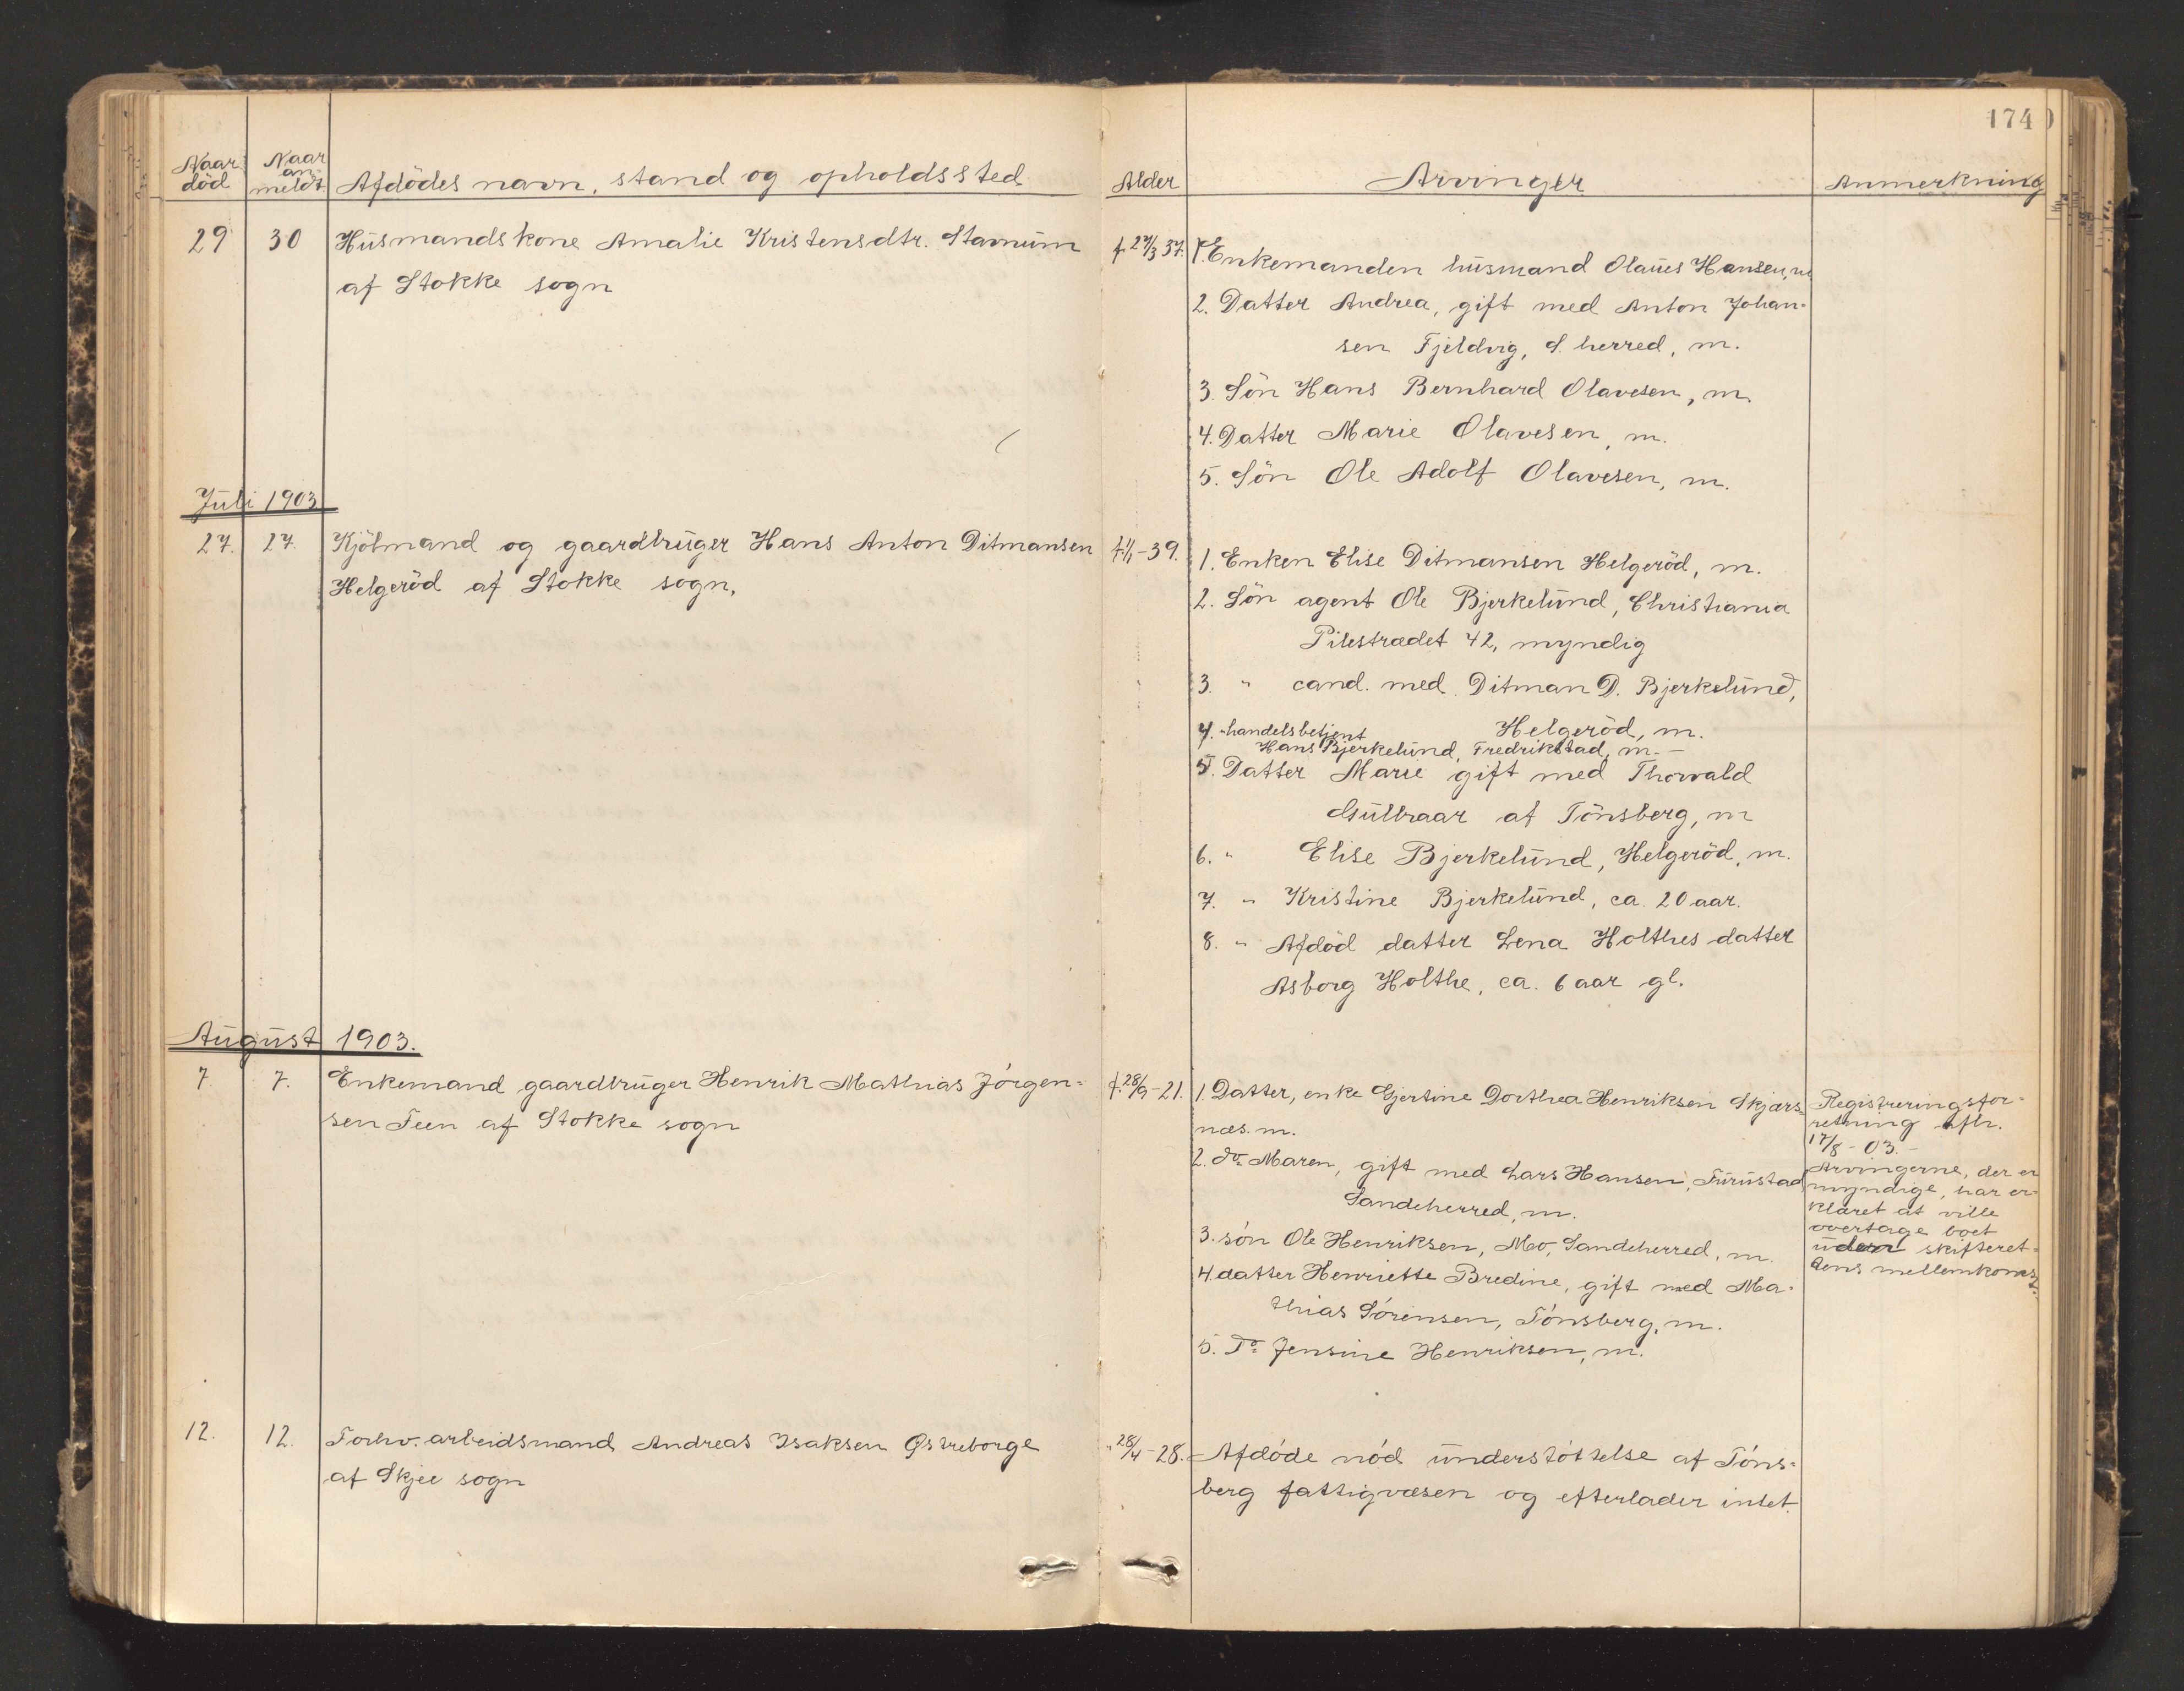 174
Naar død
Naar an- meldt.
Afdödes navn, stand og opholdssted
Alder
Arvinger
Anmerkning
29 30 Husmandskone Amalie Kristensdtr. Stavnum
af Stokke sogn
f. 27/3 37.
1. Enkemanden husmand Olaus Hansen, m
2. Datter Andrea, gift med Anton Johan-
sen Fjeldvig, S. herred, m.
3. Sön Hans Bernhard Olavesen, m.
4. Datter Marie Olavesen, m.
5. Sön Ole Adolf Olavesen, m.
Juli 1903
27. 27. Kjöbmand og gaardbruger Hans Anton Ditmansen
Helgeröd af Stokke sogn,
f. 1/1-39.
1. Enken Elise Ditmansen Helgeröd, m.
2. Sön agent Ole Bjerkelund, Christiania
Pilestrædet 42, myndig
3. " cand. med. Ditman D. Bjerkelund,
Helgeröd, m.
4. " handelsbetjent
Hans Bjerkelund, Fredrikstad, m. —
5. Datter Marie gift med Thorvald
Gulbraar af Tönsberg, m
6. " Elise Bjerkelund, Helgeröd, m.
7. " Kristine Bjerkelund, ca. 20 aar.
8. " Afdöd datter Lena Holthes datter
Asborg Holthe, ca. 6 aar gl.
August 1903.
7 7. Enkemand gaardbruger Henrik Mathias Jörgen-
sen Feen af Stokke sogn
f. 28/9-21.
1. Datter, enke Gjertine Dorthea Henriksen Skjærs-
næs. m.
2. do Maren, gift med Lars Hansen, Furustad
Sandeherred, m.
3. sön Ole Henriksen, Mo, Sandeherred, m.
4. datter Henriette Bredine, gift med Ma-
thias Sörensen, Tönsberg, m.
5. Do Jensine Henriksen, m.
Registreringsfor-
retning afh.
17/8-03.-
Arvingerne, der er
myndige, har er-
klæret at ville
overtage boet
uden skifteret-
tens mellemkomst.
12. 12. Forhv. arbeidsmand Andreas Isaksen Østreborge
af Skjee sogn
" 28/4-28.
Afdöde nöd understöttelse af Töns-
berg fattigvæsen og efterlader intet.